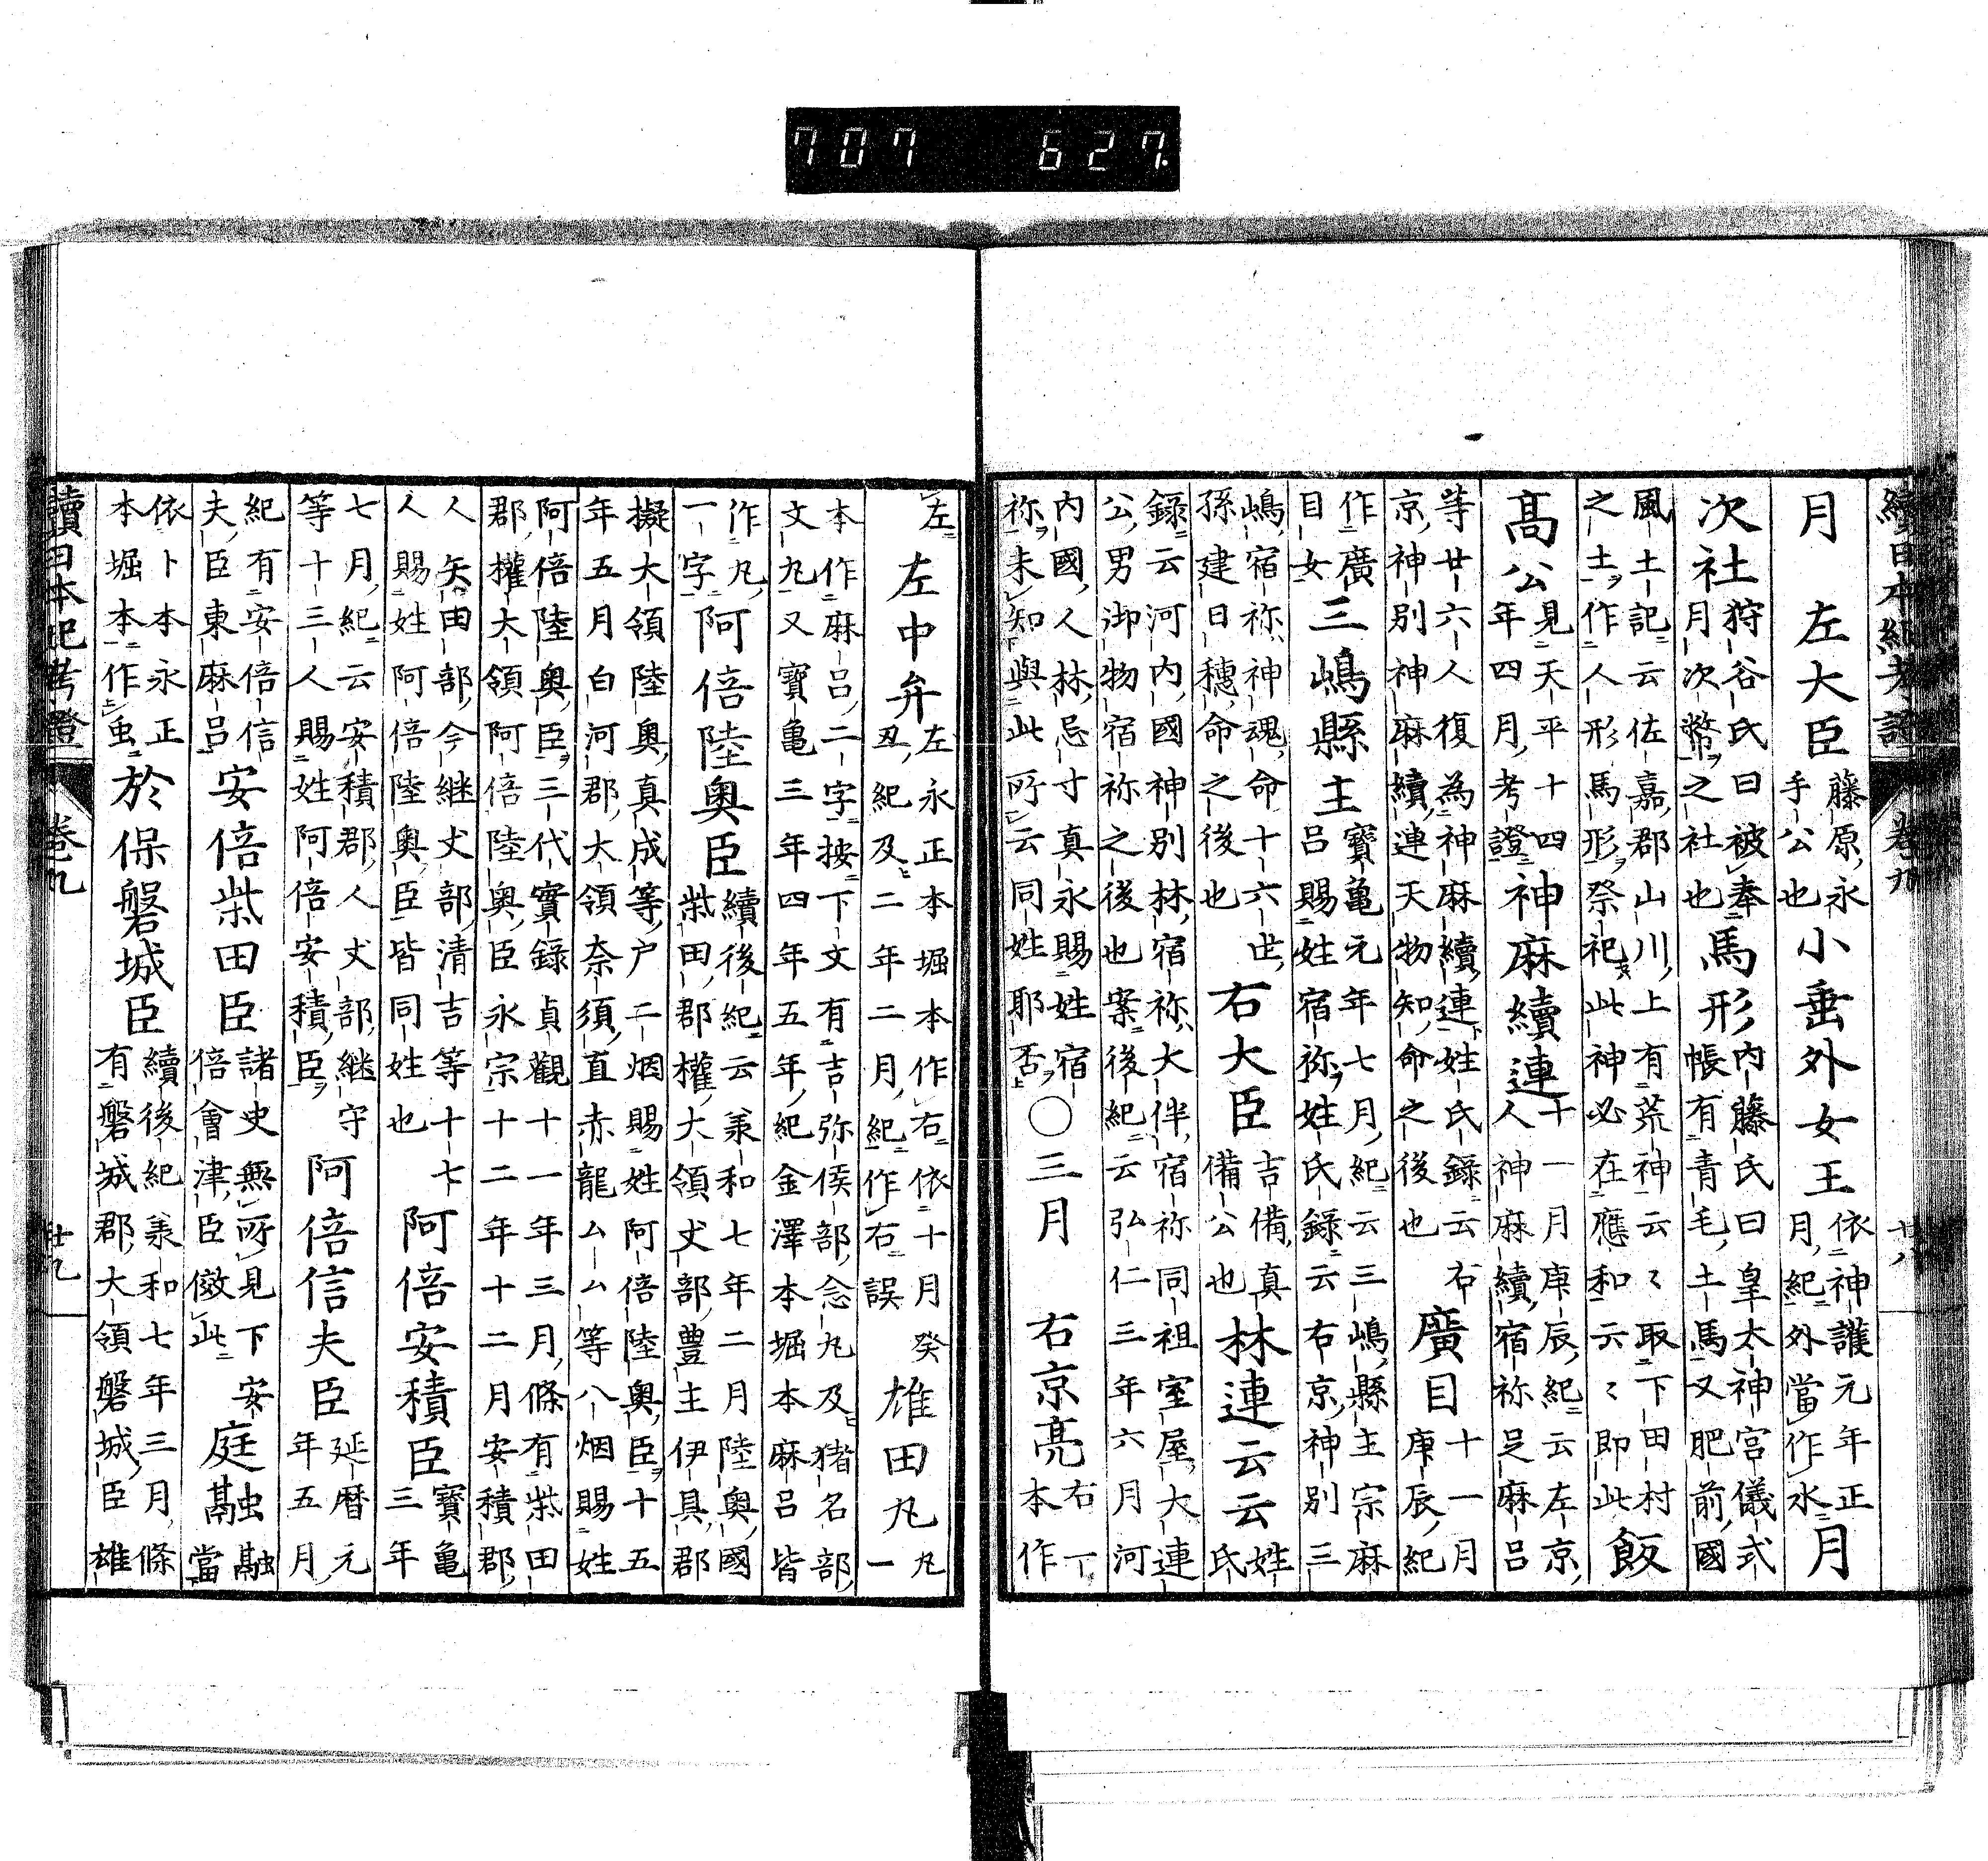 707 627.
續日本紀考證 卷九 廿八
月 左大臣 藤原永手公也 小垂外女王 依神護元年正月紀外當作水 月
次社 狩谷氏曰被奉月次幣之社也 馬形 内藤氏曰皇太神宮儀式帳有青毛土馬又肥前國
風土記云佐嘉郡山川上有荒神云々取下田村之土作人形馬形祭祀此神必在應和云々即此 飯
髙公 見天平十四年四月考證 神麻續連 十一月庚辰紀云左京人神麻續宿祢足麻呂
等廿六人復為神麻續連姓氏録云右京神別神麻續連天物知命之後也 廣目 十一月庚辰紀
作廣目女 三嶋縣主 寶亀元年七月紀云三嶋縣主宗麻呂賜姓宿祢姓氏録云右京神別三
嶋宿祢神魂命十六世孫建日穗命之後也 右大臣 吉備真備公也 林連云云 姓氏
録云河内國神別林宿祢大伴宿祢同祖室屋大連公男御物宿祢之後也案後紀云弘仁三年六月河
内國人林忌寸真永賜姓宿祢未知與此所云同姓耶否 〇三月 右京亮 右一本作
左 左中弁 左永正本堀本作右依十月癸丑紀及二年二月紀作右誤 雄田丸 丸一
本作麻呂二字按下文有吉弥侯部念丸及猪名部文丸又寶亀三年四年五年紀金澤本堀本麻呂皆
作丸一字 阿倍陸奥臣 續後紀云羕和七年二月陸奥國柴田郡權大領丈部豊主伊具郡
擬大領陸奥真成等户二烟賜姓阿倍陸奥臣十五年五月白河郡大領奈須直赤龍厶厶等八烟賜姓
阿倍陸奥臣三代實録貞觀十一年三月條有柴田郡權大領阿倍陸奥臣永宗十二年十二月安積郡
人矢田部今継丈部清吉等十七人賜姓阿倍陸奥臣皆同姓也 阿倍安積臣 寶亀三年
七月紀云安積郡人丈部継守等十三人賜姓阿倍安積臣 阿倍信夫臣 延暦元年五月
紀有安倍信夫臣東麻呂 安倍柴田臣 諸史無所見下安倍會津臣倣此 庭融 融當
依卜本永正本堀本作虫 於保磐城臣 續後紀羕和七年三月條有磐城郡大領磐城臣雄
續日本紀考證 卷九 廿九